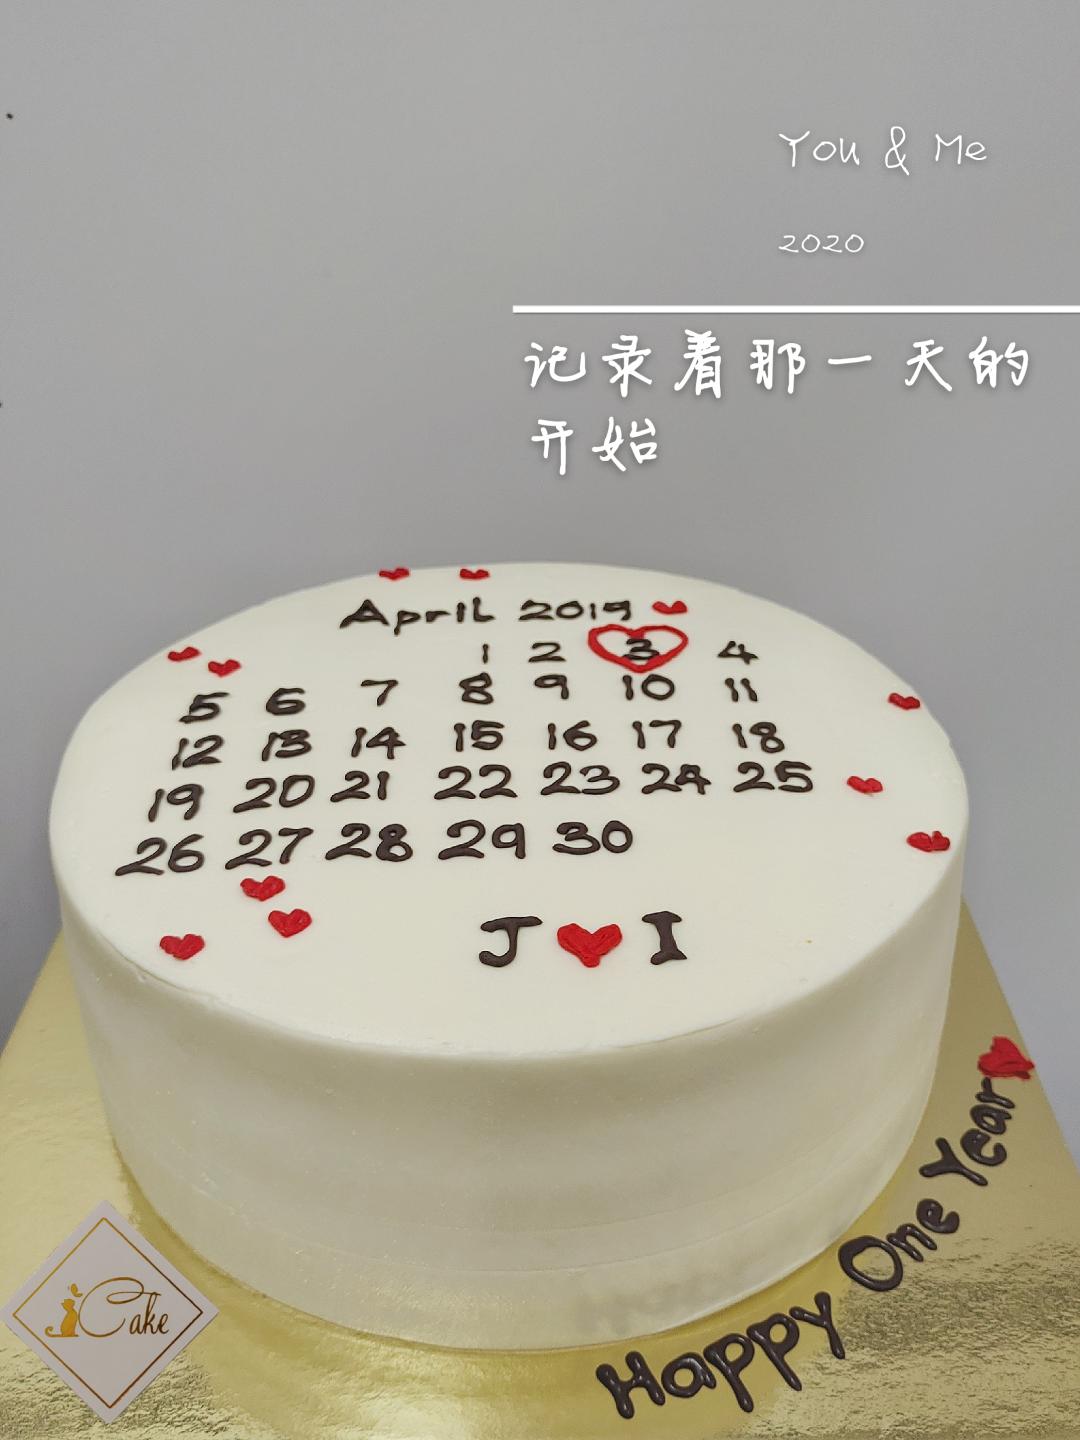 You & Me
2020
记录着那一天的
开始
April 2019
1 2 3 4
5 6 7 8 9 10 11
12 13 14 15 16 17 18
19 20 21 22 23 24 25
26 27 28 29 30
J ❤ I
Happy One Year
iCake